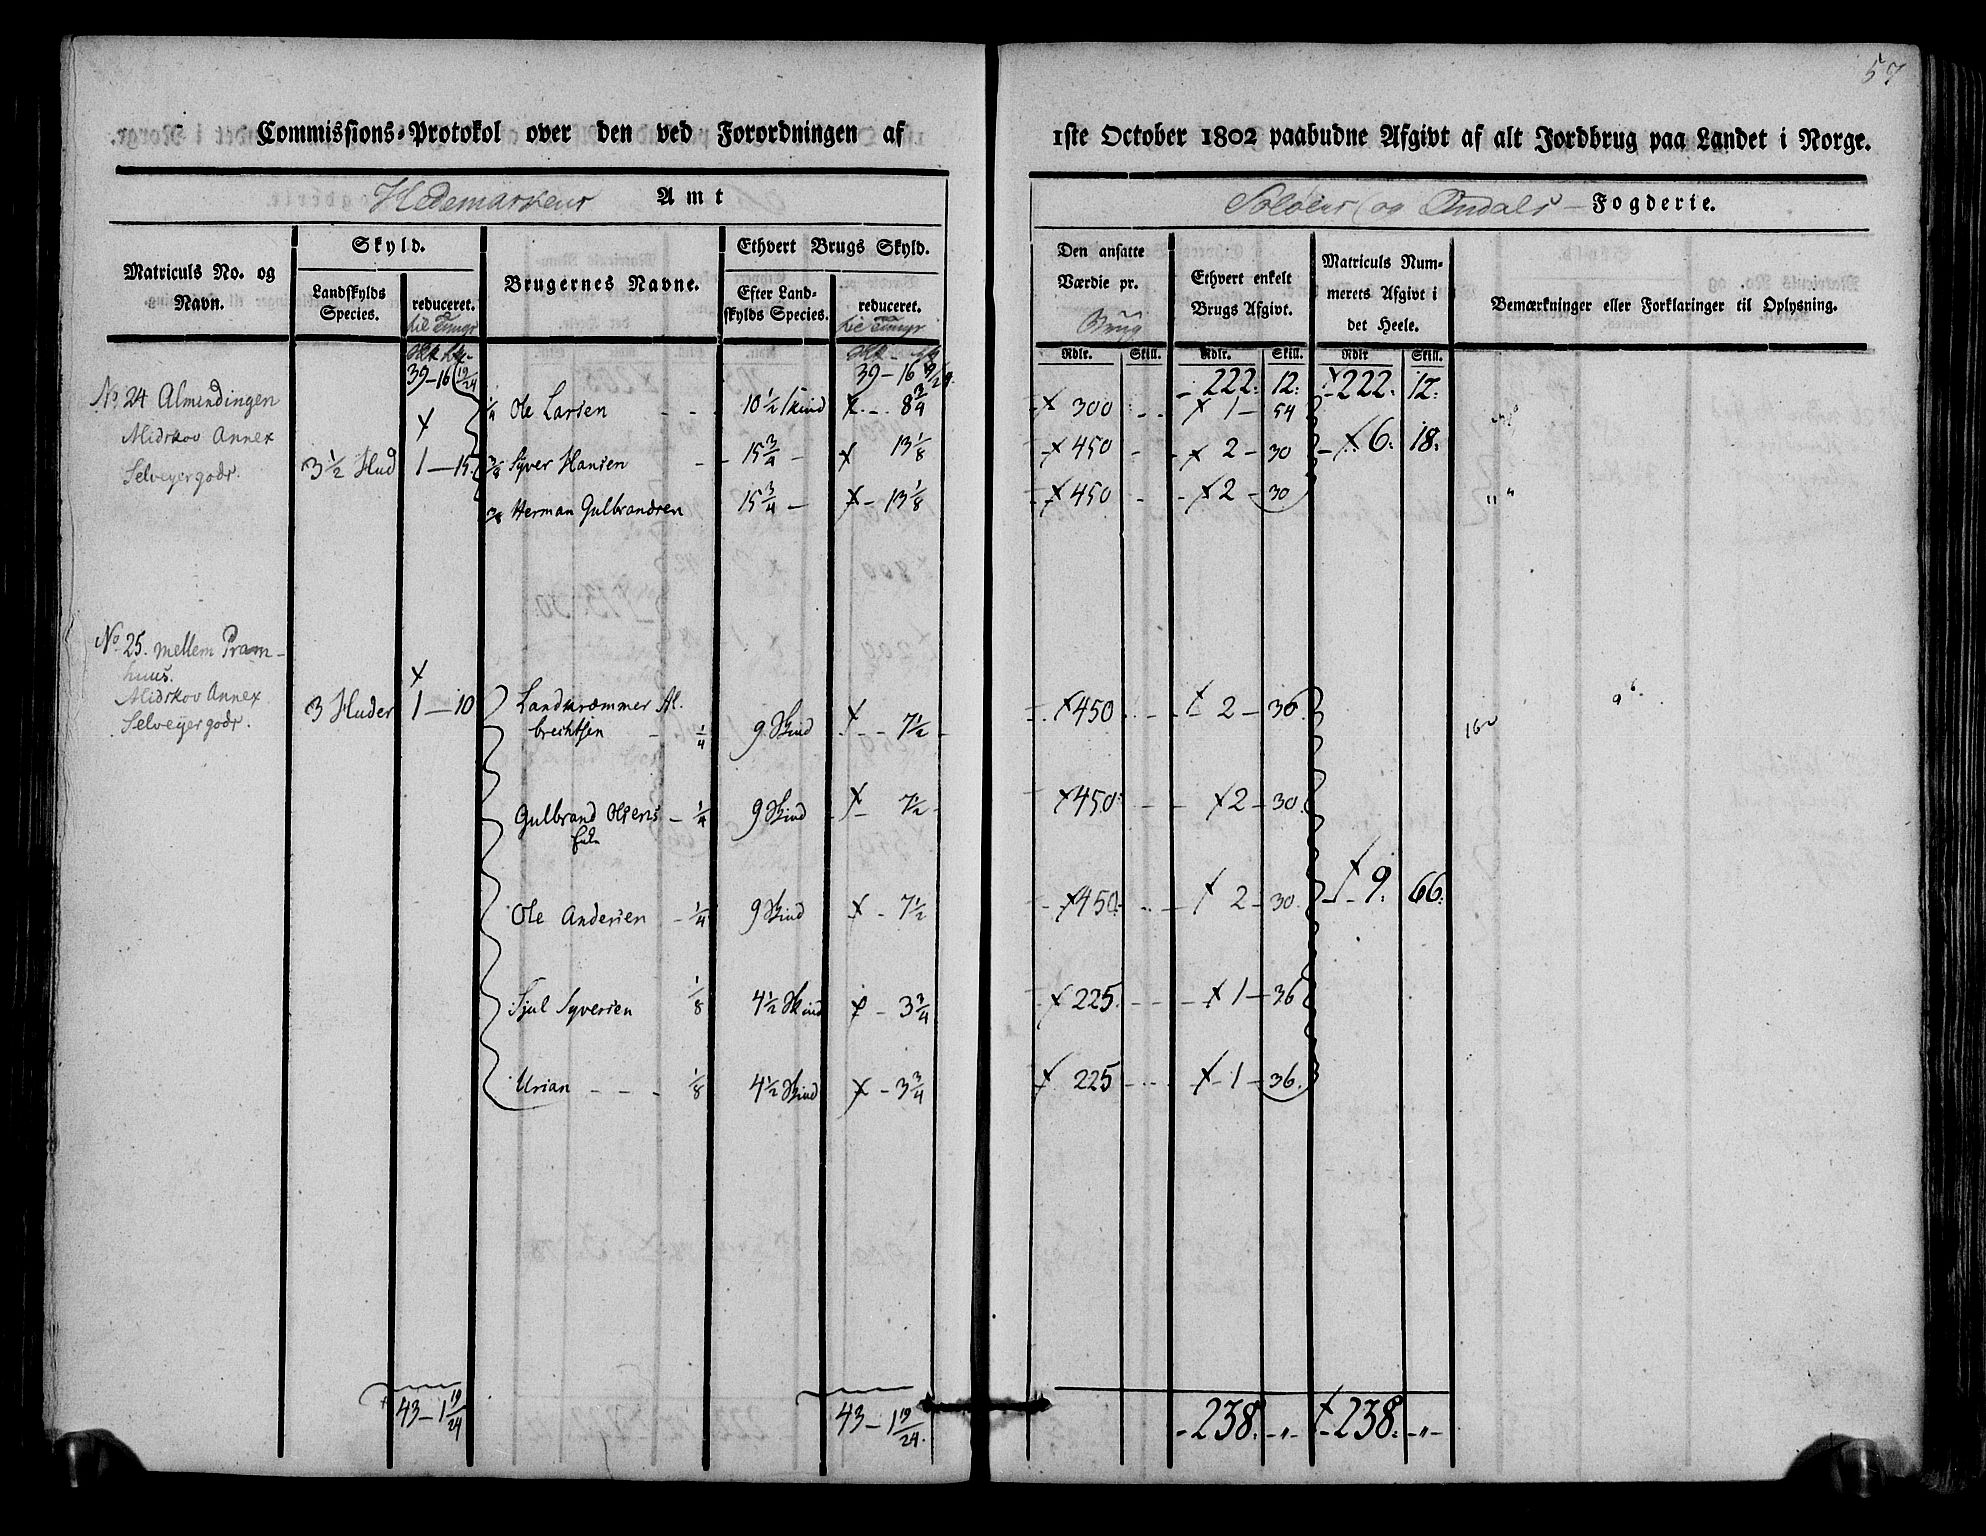 57
Commissions-Protokol over den ved Forordningen af 1ste October 1802 paabudne Afgivt af alt Jordbrug paa Landet i Norge.
Hedemarkens Amt
Soløens og Fogderie.
Matriculs No. og Navn.
Skyld.
Landskylds Species.
reduceret.
Brugernes Navne.
Ethvert Brugs Skyld.
Efter Landskylds Species.
reduceret.
Den ansatte Værdie pr. Brug
Ethvert enkelt Brugs Afgivt.
Matriculs Nummerets Afgivt i det Heele.
Bemærkninger eller Forklaringer til Oplysning.
Rdlr. Skill. Rdlr. Skill. Rdlr Skill.
39-16 19/24 39-16 19/24 222: 12: 222. 12:
No 24 Almindingen
Midskov Annex
Selveyergods.
3 1/2 Hud 1-15
1/4 Ole Larsen 10 1/2 Skind 8 3/4 300 1-54
3/8 Syver Hansen 15 3/4 13 1/8 450 2-30 6: 18:
3/8 Herman Gulbrandsen 15 3/4 13 1/8 450 2-30
No 25. mellem Pramhuus.
Midskov Annex
Selveyergods.
3 Huder 1-10
Albrechtsen 1/4 9 Skind 7 1/2 450 2-36
Gulbrand Olsens 1/4 9 Skind 7 1/2 450 2-30
Ole Andersen 1/4 9 Skind 7 1/2 450 2-30 9: 66:
Sjul Syversen 1/8 4 1/2 Skind 3 3/4 225 1-36
Urian 1/8 4 1/2 Skind 3 3/4 225 1-36
43-1 19/24 43-1 19/24 238. -"- 238. -"-